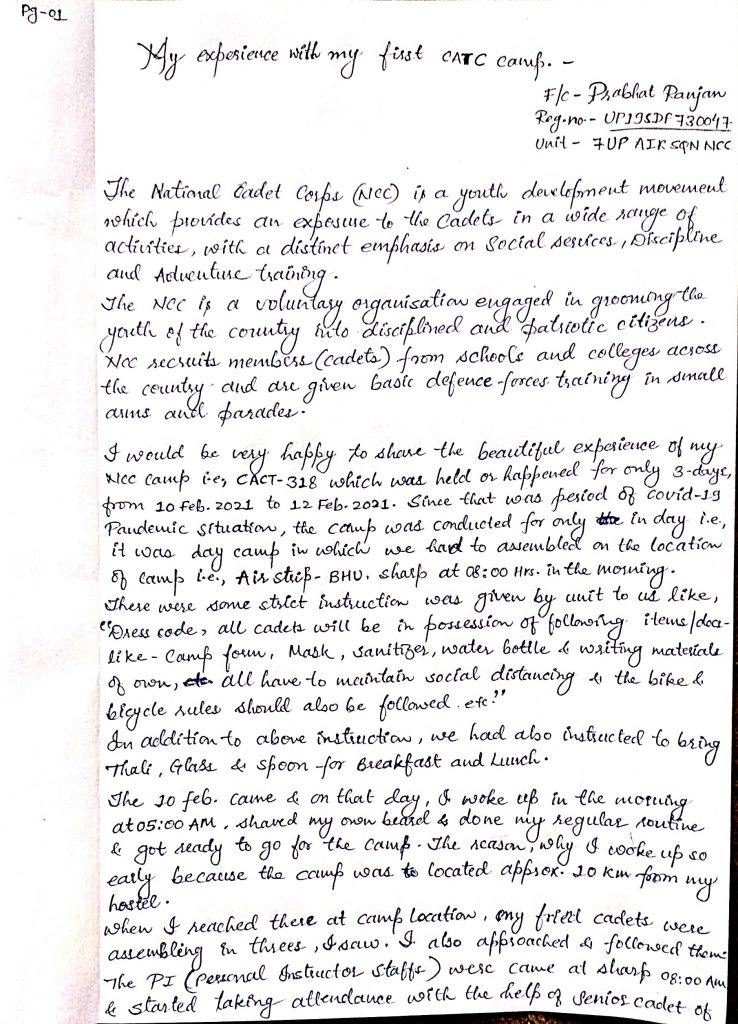 Pg-01
My experience with my first CATC camp. -
F/c - Prabhat Ranjan
Reg.no. - UP19SDF730047
Unit - 7UP AIR SQN NCC
The National Cadet Corps (NCC) is a youth development movement
which provides an exposure to the Cadets in a wide range of
activities, with a distinct emphasis on Social services, Discipline
and Adventure training.
The NCC is a voluntary organisation engaged in grooming the
youth of the country into disciplined and patriotic citizens.
NCC recruits members (cadets) from schools and colleges across
the country and are given basic defence-forces training in small
arms and parades.
I would be very happy to share the beautiful experience of my
NCC camp i.e, CACT-318 which was held or happened for only 3-days,
from 10 Feb. 2021 to 12 Feb. 2021. Since that was period of Covid-19
Pandemic situation, the camp was conducted for only in day i.e.,
it was day camp in which we had to assembled on the location
of camp i.e., Air strip - BHU. sharp at 08:00 Hrs. in the morning.
There were some strict instruction was given by unit to us like,
"Dress code, all cadets will be in possession of following items/docs-
like - Camp form, Mask, sanitizer, water bottle & writing materials
of own, all have to maintain social distancing & the bike &
bicycle rules should also be followed. etc."
In addition to above instruction, we had also instructed to bring
Thali, Glass & spoon for Breakfast and Lunch.
The 10 feb. came & on that day, I woke up in the morning
at 05:00 AM. shaved my own beard & done my regular routine
& got ready to go for the camp. The reason, why I wooke up so
early because the camp was located approx. 10 Km from my
hostel.
When I reached there at camp location, my cadets were
assembling in threes, I saw. I also approached & followed them.
The PI (Personal Instructor Staffs) were came at sharp 08:00 AM
& started taking attendance with the help of Senior cadet of